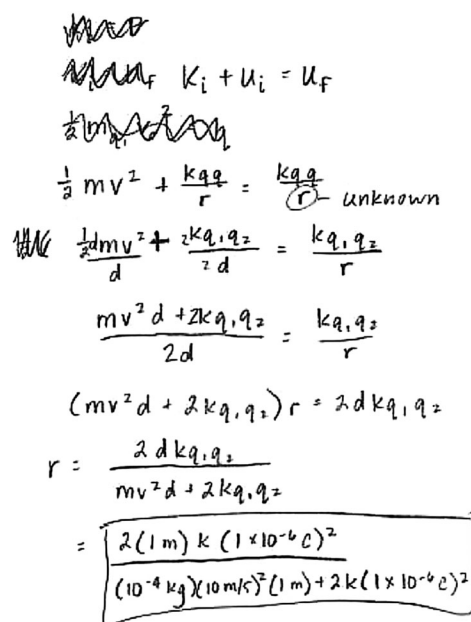 Kᵢ + Uᵢ = U_f
½ mv² + kqq/r = kqq/r - unknown
½dmv²/d + 2kq₁q₂/2d = kq₁q₂/r
mv²d + 2kq₁q₂/2d = kq₁q₂/r
(mv²d + 2kq₁q₂)r = 2dkq₁q₂
r = 2dkq₁q₂/mv²d + 2kq₁q₂
= 2(1m)k(1×10⁻⁶C)²/(10⁻⁴kg)(10m/s)²(1m) + 2k(1×10⁻⁶C)²